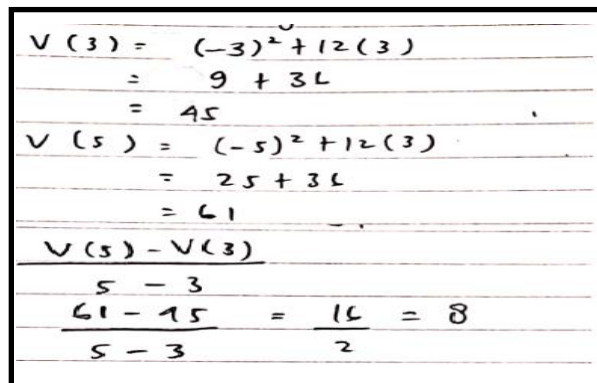 V (3) = (-3)² + 12 (3)
= 9 + 36
= 45
V (5) = (-5)² + 12 (3)
= 25 + 36
= 61
V (5) - V (3)
5 - 3
61 - 45 = 16 = 8
5 - 3 2